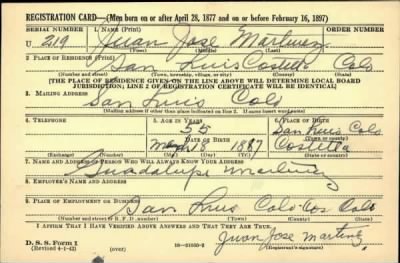 REGISTRATION CARD—(Men born on or after April 28, 1877 and on or before February 16, 1897)
SERIAL NUMBER 1. NAME (Print) ORDER NUMBER
U 219 Juan Jose Martinez
(First) (Middle) (Last)
2. PLACE OF RESIDENCE (Print)
San Luis Costilla Colo
(Number and street) (Town, township, village, or city) (County) (State)
[THE PLACE OF RESIDENCE GIVEN ON THE LINE ABOVE WILL DETERMINE LOCAL BOARD
JURISDICTION; LINE 2 OF REGISTRATION CERTIFICATE WILL BE IDENTICAL]
3. MAILING ADDRESS
San Luis Colo
(Mailing address if other than place indicated on line 2. If same insert word same)
4. TELEPHONE 5. AGE IN YEARS 6. PLACE OF BIRTH
55 San Luis Colo
DATE OF BIRTH (Town or county)
18 1887 Costilla
(Exchange) (Number) (Mo.) (Day) (Yr.) (State or country)
7. NAME AND ADDRESS OF PERSON WHO WILL ALWAYS KNOW YOUR ADDRESS
Guadalupe Martinez
8. EMPLOYER'S NAME AND ADDRESS
9. PLACE OF EMPLOYMENT OR BUSINESS
San Luis Colo Cos Colo
(Number and street or R. F. D. number) (Town) (County) (State)
I AFFIRM THAT I HAVE VERIFIED ABOVE ANSWERS AND THAT THEY ARE TRUE.
D. S. S. Form 1
(Revised 4-1-42) (over) Juan Jose Martinez
(Registrant's signature)